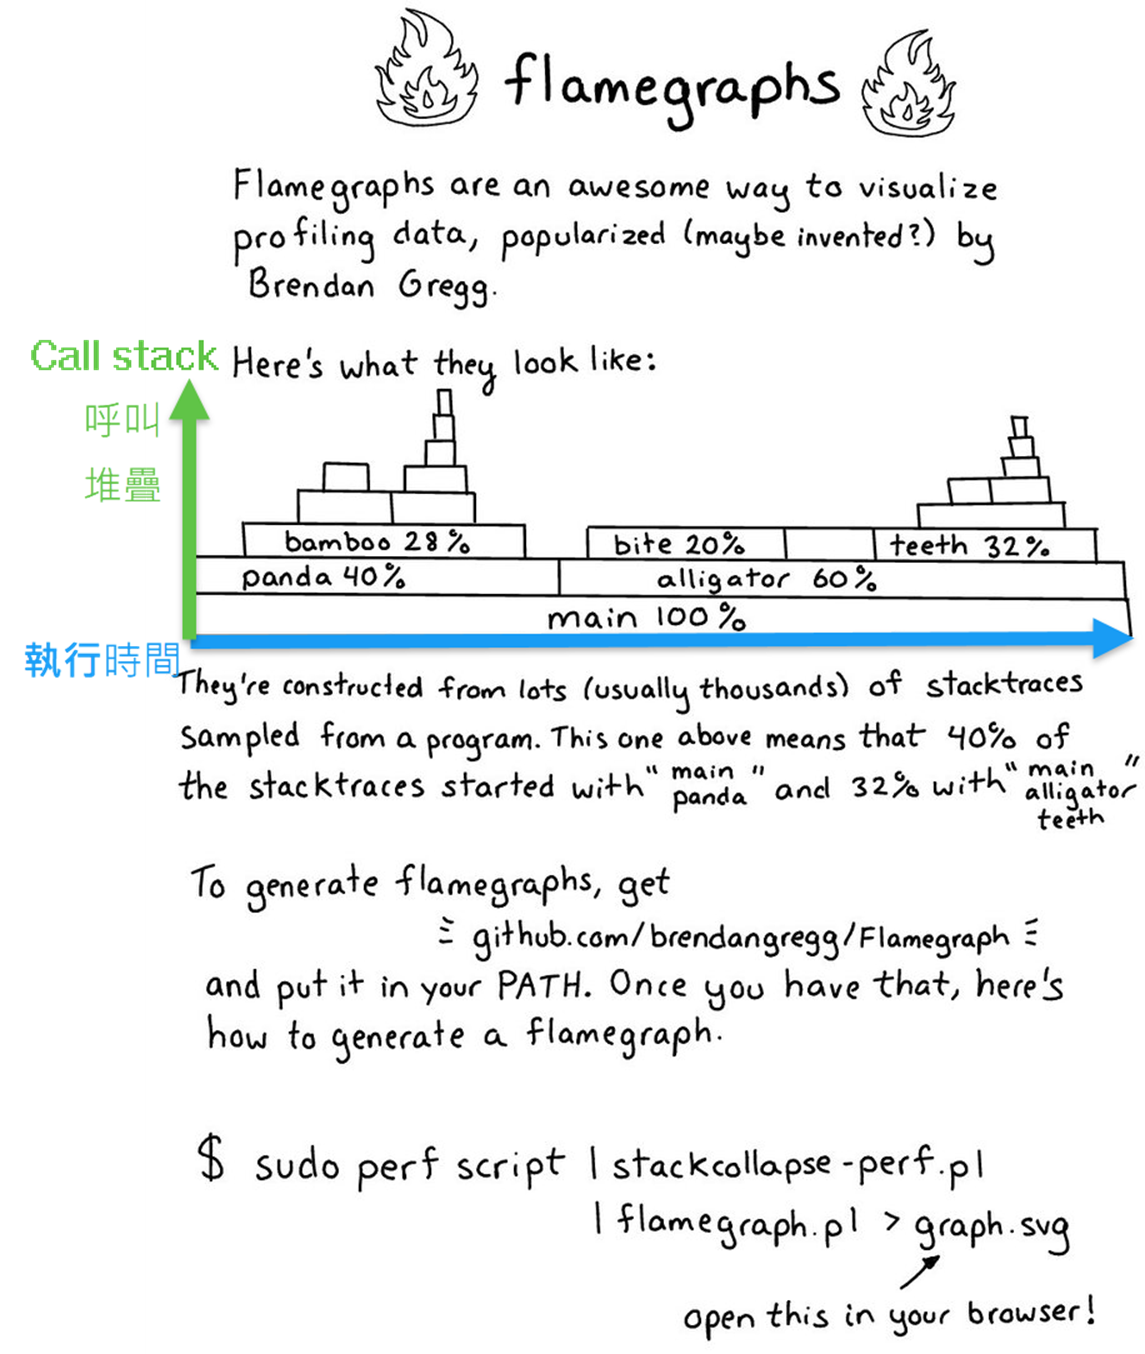 flamegraphs
Flamegraphs are an awesome way to visualize
profiling data, popularized (maybe invented?) by
Brendan Gregg.
Call stack
Here's what they look like:
呼叫
堆疊
bamboo 28%
bite 20%
teeth 32%
panda 40%
alligator 60%
main 100%
執行時間
They're constructed from lots (usually thousands) of stacktraces
sampled from a program. This one above means that 40% of
the stacktraces started with "main panda" and 32% with "main alligator teeth"
To generate flamegraphs, get
github.com/brendangregg/Flamegraph
and put it in your PATH. Once you have that, here's
how to generate a flamegraph.
$ sudo perf script | stackcollapse-perf.pl
| flamegraph.pl > graph.svg
open this in your browser!